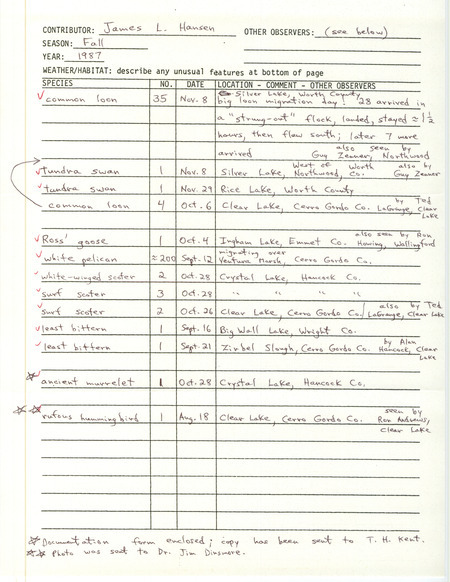 CONTRIBUTOR: James L. Hansen OTHER OBSERVERS: (see below)
SEASON: Fall
YEAR: 1987
WEATHER/HABITAT: describe any unusual features at bottom of page
SPECIES NO. DATE LOCATION - COMMENT - OTHER OBSERVERS
Silver Lake, Worth County
common loon 35 Nov. 8 big loon migration day! 28 arrived in
a "strung-out" flock, landed, stayed ≈ 1½
hours, then flew south; later 7 more
arrived also seen by Guy Zenner, Northwood
tundra swan 1 Nov. 8 Silver Lake, West of Northwood, Worth Co. also by Guy Zenner
tundra swan 1 Nov. 29 Rice Lake, Worth County
common loon 4 Oct. 6 Clear Lake, Cerro Gordo Co. by Ted LaGrange, Clear Lake
Ross' goose Oct. 4 Ingham Lake, Emmet Co. also seen by Ron Howing, Wallingford
white pelican ≈200 Sept. 12 migrating over Ventura Marsh, Cerro Gordo Co.
white-winged scoter 2 Oct. 28 Crystal Lake, Hancock Co.
surf scoter 3 Oct. 28 " " " "
surf scoter 2 Oct. 26 Clear Lake, Cerro Gordo Co. also by Ted LaGrange, Clear Lake
least bittern 1 Sept. 16 Big Wall Lake, Wright Co.
least bittern 1 Sept. 21 Zirbel Slough, Cerro Gordo Co. by Alan Hancock, Clear Lake
ancient murrelet 1 Oct. 28 Crystal Lake, Hancock Co.
rufous hummingbird 1 Aug. 18 Clear Lake, Cerro Gordo Co. seen by Ron Andrews, Clear Lake
☆ Documentation form enclosed; copy has been sent to T. H. Kent.
☆☆ Photo was sent to Dr. Jim Dinsmore.